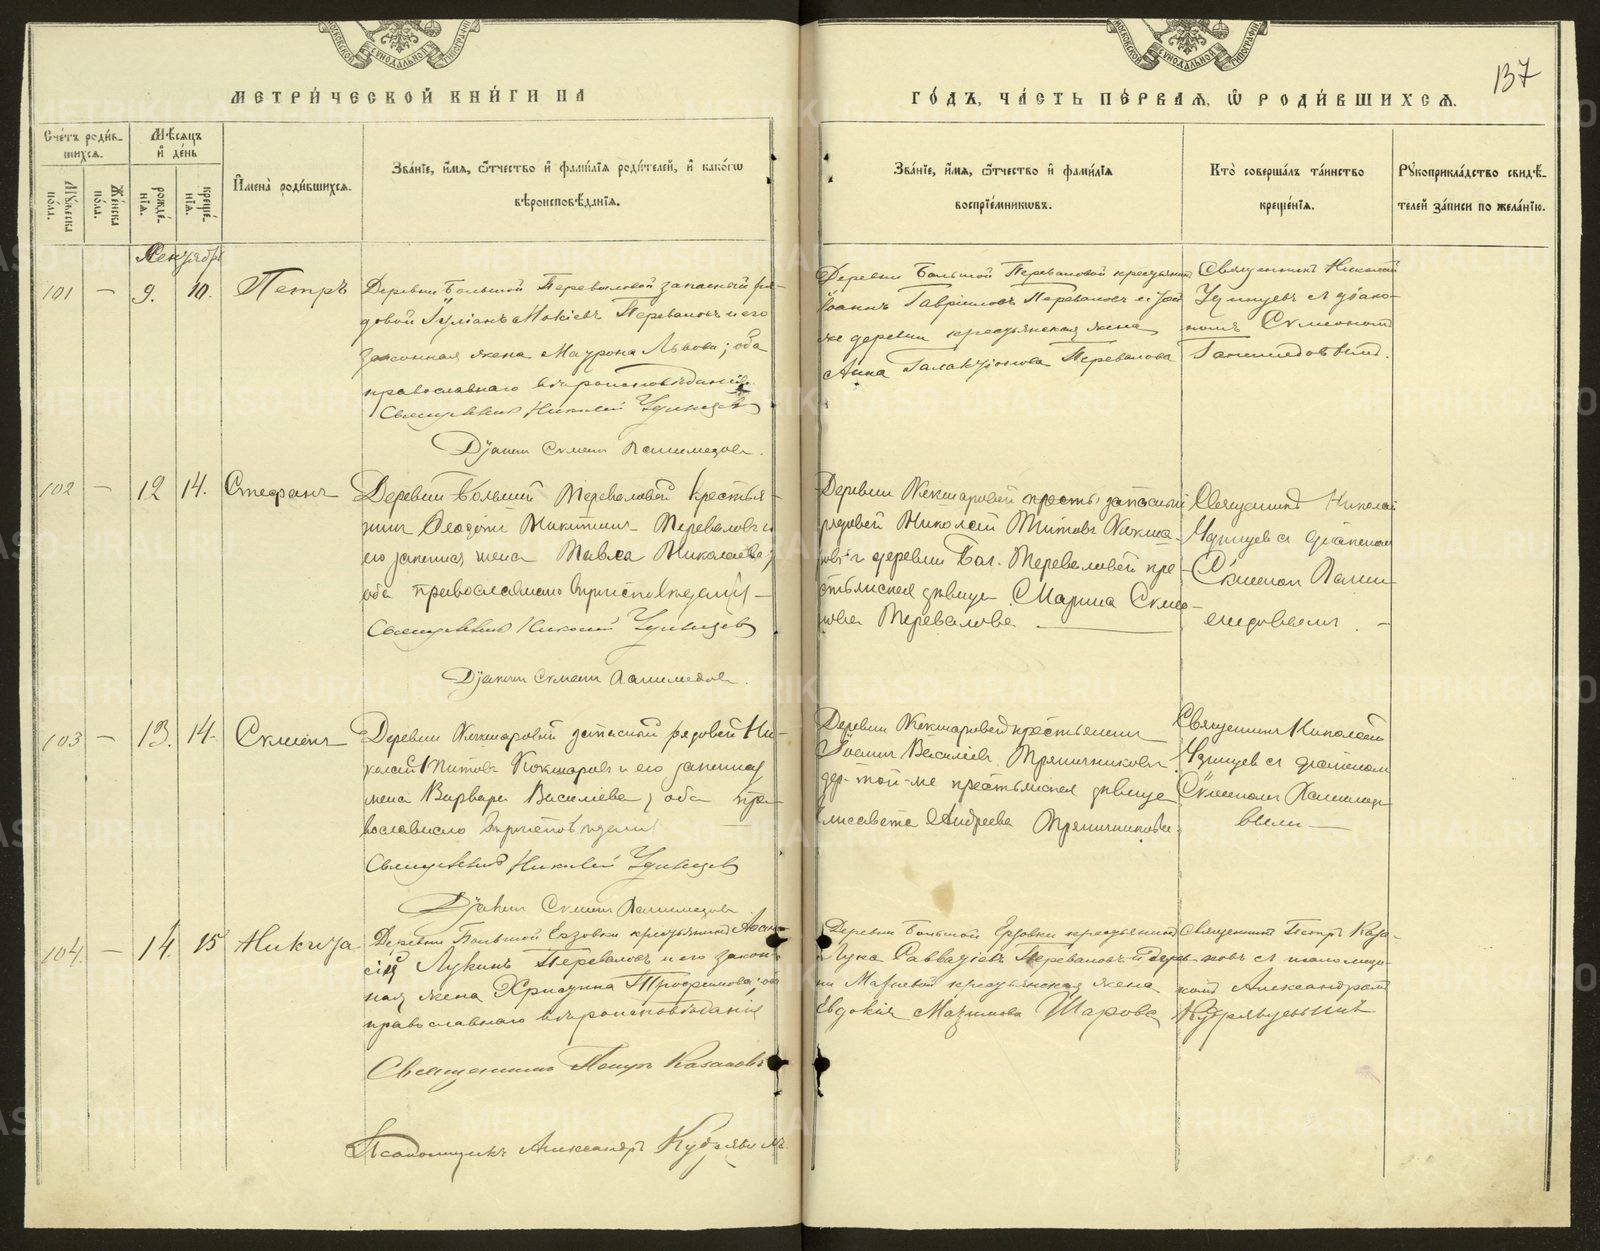 МЕТРИ́ЧЕСКОЙ КНИ́ГИ НА
ГО́ДЪ, ЧА́СТЬ ПЕ́РВАЯ, Ѿ РОДИ́ВШИХСЯ.
137
Сче́тъ роди́вшихся.
Мꙋ́жеска по́ла.
Же́нска по́ла.
Мѣ́сяцъ и҆ де́нь
рожде́нїя.
креще́нїя.
И҆мена̀ роди́вшихся.
Зва́нїе, и҆́мя, ѻ҆́тчество и҆ фами́лїя роди́телей, и҆ како́гѡ
вѣроисповѣ́данїя.
Зва́нїе, и҆́мя, ѻ҆́тчество и҆ фами́лїя
воспрїе́мникѡвъ.
Кто̀ соверша́лъ та́инство
креще́нїя.
Рꙋкоприкла́дство свидѣ́телей за́писи по жела́нїю.
Сентябрь
101 — 9. 10. Петръ
Деревни Большой Переваловой запасный рядовой Іуліанъ Мокіевъ Переваловъ и его
законная жена Матрона Львова; оба
православнаго вѣроисповѣданія.
Священникъ Николай Удинцевъ
Діаконъ Симеонъ Ганимедовъ.
Деревни Большой Переваловой крестьянинъ
Іоаннъ Гавриловъ Переваловъ и той
же деревни крестьянская жена
Анна Галактіонова Перевалова
Священникъ Николай
Удинцевъ съ діакономъ Симеономъ
Ганимедовымъ.
102 — 12 14. Стефанъ
Деревни Большой Переваловой крестьянинъ Ѳеодотъ Никитинъ Переваловъ и
его законная жена Павла Николаева;
оба православнаго вѣроисповѣданія —
Священникъ Николай Удинцевъ
Діаконъ Симеонъ Ганимедовъ.
Деревни Кокшаровой запасный
рядовой Николай Титовъ Кокшаровъ и деревни Бол. Переваловой крестьянская дѣвица Марина Симеонова Перевалова
Священникъ Николай
Удинцевъ съ діакономъ
Симеономъ Ганимедовымъ. —
103 — 13. 14. Симеонъ
Деревни Кокшаровой запасный рядовой Николай Титовъ Кокшаровъ и его законная
жена Варвара Василіева; оба православнаго вѣроисповѣданія
Священникъ Николай Удинцевъ
Діаконъ Симеонъ Ганимедовъ
Деревни Кокшаровой крестьянинъ
Іоаннъ Василіевъ Пряничниковъ
дер. той-же крестьянская дѣвица
Елисавета Андреева Пряничникова.
Священникъ Николай
Удинцевъ съ діакономъ
Симеономъ Ганимедовымъ —
104. — 14. 15 Никита
Деревни Большой Ерзовки крестьянинъ Лукинъ Переваловъ и его законная жена Христина Трофимова; оба
православнаго вѣроисповѣданія
Священникъ Петръ Казаковъ
Псаломщикъ Александръ Кудрявцевъ.
Деревни Большой Ерзовки крестьянинъ
Лука Савватіевъ Переваловъ и деревни крестьянская жена
Евдокія Максимова Шарова
Священникъ Петръ Казаковъ съ псаломщикомъ Александромъ
Кудрявцевымъ